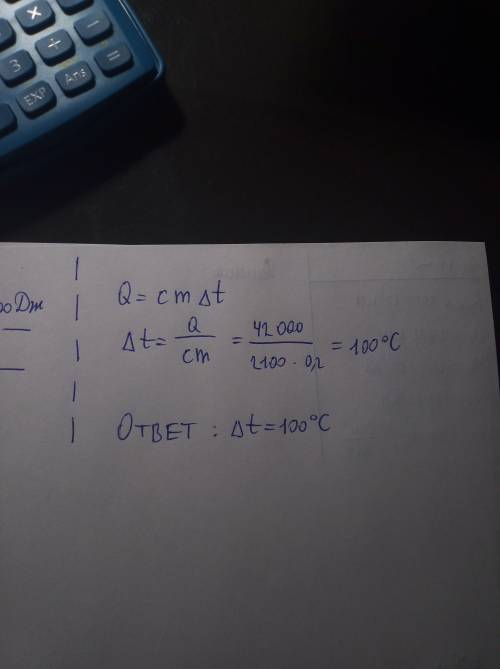 ×
+
−
3
Ans
=
EXP
Q = cm Δt
Дж
Δt = Q/cm = 42 000/2100 · 0,2 = 100°C
ОТВЕТ : Δt = 100°C